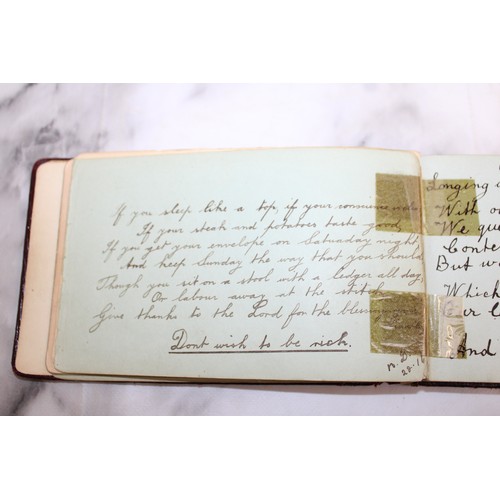 If you sleep like a top, if your conscience
If your steak and potatoes taste good,
If you get your envelope on Satuaday night,
And keep Sunday the way that you should
Though you sit on a stool with a ledger all day,
Or labour away at the
Give thanks to the Lord for the
Dont wish to be rich.
Longing
With
We
But
Which
And